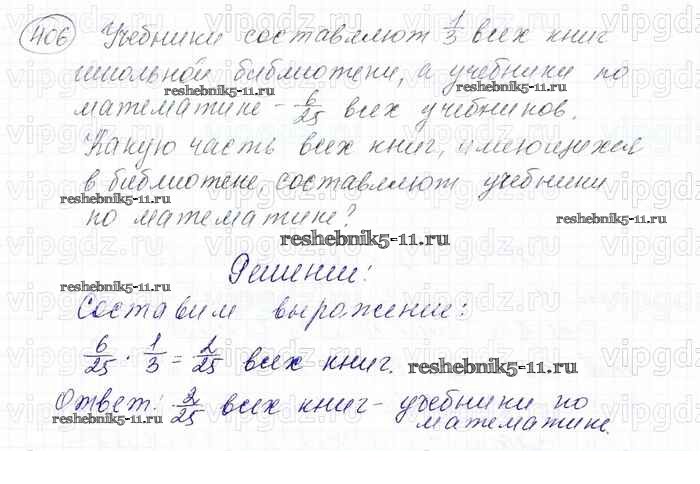 406 Учебники составляют 1/3 всех книг
школьной библиотеки, а учебники по
reshebnik5-11.ru reshebnik5-11.ru
математике - 6/25 всех учебников.
Какую часть всех книг, имеющихся
в библиотеке, составляют учебники
reshebnik5-11.ru
по математике?
reshebnik5-11.ru
reshebnik5-11.ru
Решение:
reshebnik5-11.ru
Составим выражение:
6/25 · 1/3 = 2/25 всех книг.
reshebnik5-11.ru
Ответ: 2/25 всех книг - учебники по
reshebnik5-11.ru
математике.